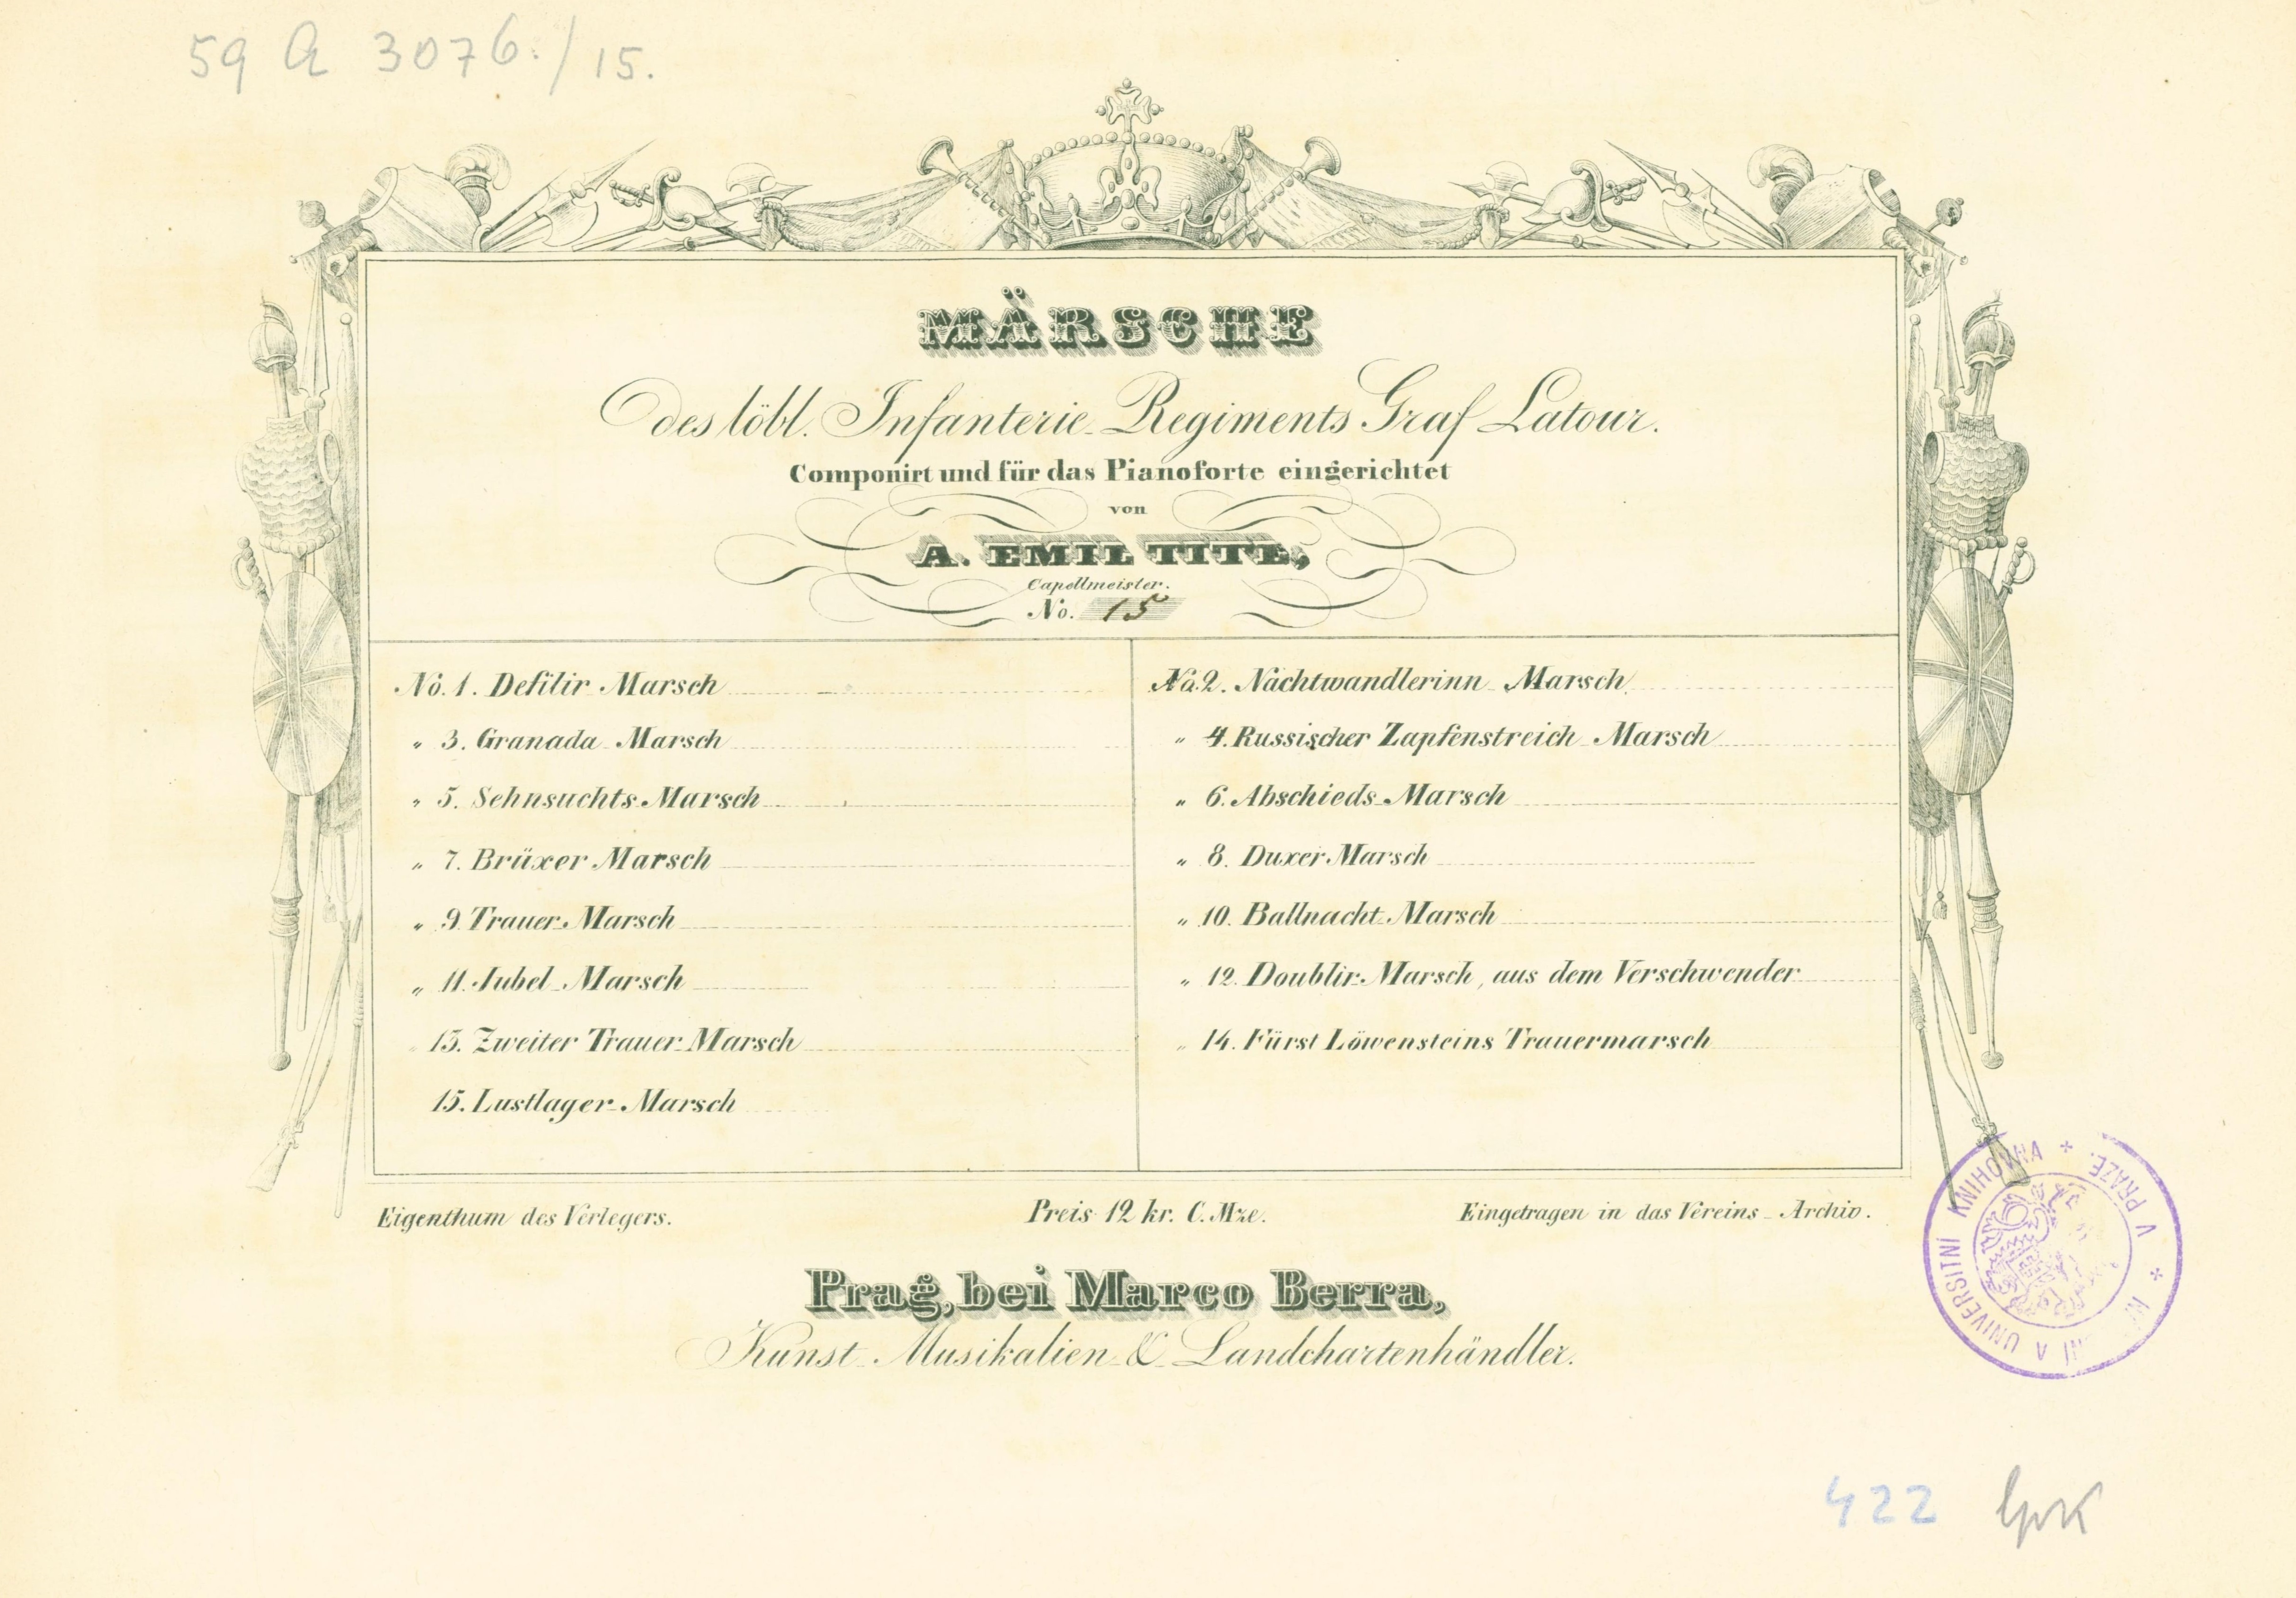 59 A 3076./15.
MÄRSCHE
des löbl. Infanterie-Regiments Graf Latour.
Componirt und für das Pianoforte eingerichtet
von
A. EMIL TITL,
Capellmeister.
No. 15
No. 1. Defilir-Marsch
No. 2. Nachtwandlerinn-Marsch
" 3. Granada-Marsch
" 4. Russischer Zapfenstreich-Marsch
" 5. Sehnsuchts-Marsch
" 6. Abschieds-Marsch
" 7. Brüxer Marsch
" 8. Duxer Marsch
" 9. Trauer-Marsch
" 10. Ballnacht-Marsch
" 11. Jubel-Marsch
" 12. Doublir-Marsch, aus dem Verschwender
" 13. Zweiter Trauer-Marsch
" 14. Fürst Löwensteins Trauermarsch
15. Lustlager-Marsch
Eigenthum des Verlegers.
Preis 12 kr. C. Mze.
Eingetragen in das Vereins-Archiv.
A UNIVERSITNÍ KNIHOVNA * V PRAZE. *
Prag, bei Marco Berra,
Kunst-Musikalien-& Landchartenhändler.
422